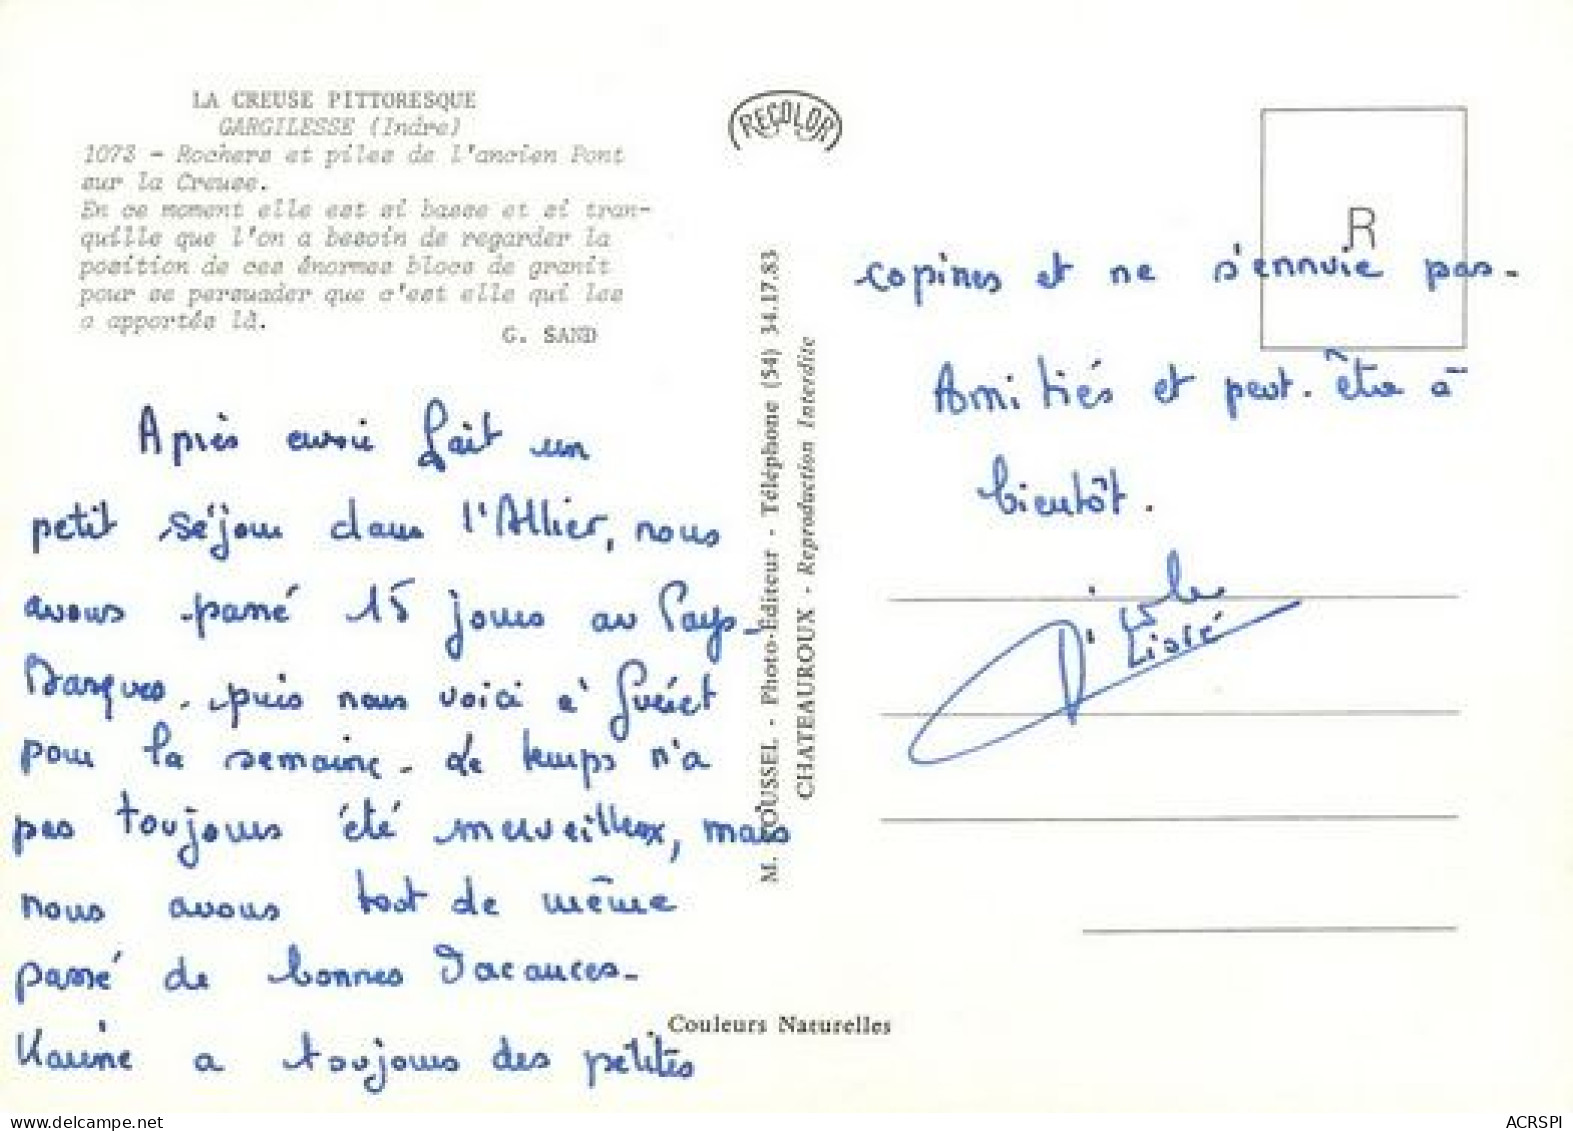 LA CREUSE PITTORESQUE
GARGILESSE (Indre)
1073 - Rochers et piles de l'ancien Pont
sur la Creuse.
En ce moment elle est si basse et si tran-
quille que l'on a besoin de regarder la
position de ces énormes blocs de granit
pour se persuader que c'est elle qui les
a apportés là.
G. SAND
Après avoir fait un
petit séjour dans l'Allier, nous
avons passé 15 jours au Pays-
Basques. puis nous voici à Guéret
pour la semaine. Le temps n'a
pas toujours été merveilleux, mais
nous avons tout de même
passé de bonnes vacances-
Karine a toujours des petites
RECOLOR
M. ROUSSEL - Photo-Éditeur - Téléphone (54) 34.17.83
CHATEAUROUX - Reproduction Interdite
R
copines et ne s'ennuie pas.
Amitiés et peut-être à
bientôt.
Couleurs Naturelles
ACRSPI